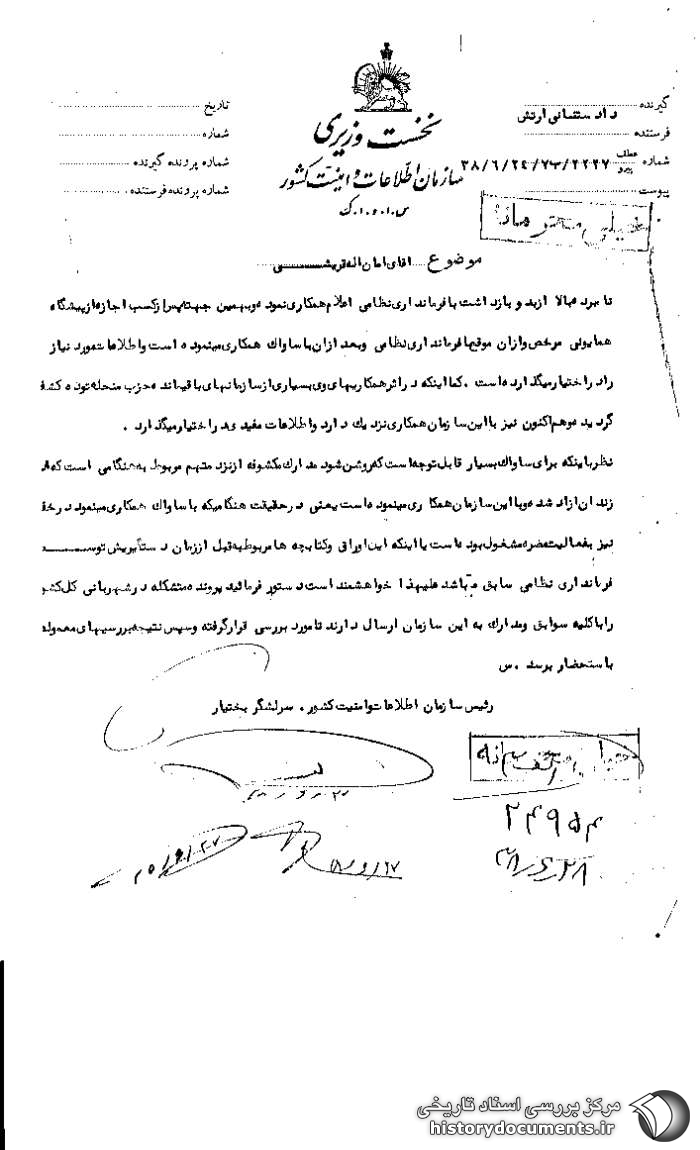 گیرنده دادستانی ارتش
فرستنده
شماره عطف پیرو ۳۸/۶/۲٤/۷۳/۲۲۲۷
پیوست
نخست وزیری
سازمان اطلاعات و امنیت کشور
س.ا.و.ا.ک
تاریخ
شماره:
شماره پرونده گیرنده
شماره پرونده فرستنده
خیلی محرمانه
موضوع آقای امان اله قریشی
نامبرده بالا از بدو بازداشت با فرمانداری نظامی اعلام همکاری نموده و بهمین جهت پس از کسب اجازه از پیشگاه
همایونی مرخص و از آن موقع با فرمانداری نظامی و بعد از آن با ساواک همکاری مینموده است و اطلاعات مورد نیاز
را در اختیار میگذارده است . کما اینکه در اثر همکاریهای وی بسیاری از سازمانهای باقیمانده حزب منحله توده کشف
گردیده و هم اکنون نیز با این سازمان همکاری نزدیک دارد و اطلاعات مفیدی در اختیار میگذارد .
نظر باینکه برای ساواک بسیار قابل توجه است که روشن شود مدارک مکشوفه از نزد متهم مربوط به هنگامی است که از
زندان ازاد شده و با این سازمان همکاری مینموده است یعنی در حقیقت هنگامیکه با ساواک همکاری مینمود در خفا
نیز بفعالیت مضره مشغول بوده است یا اینکه این اوراق و کتابچه ها مربوط به قبل از زمان دستگیریش توسط
فرمانداری نظامی سابق میباشد علیهذا خواهشمند است دستور فرمائید پرونده متشکله در شهربانی کل کشور
را با کلیه سوابق و مدارک به این سازمان ارسال دارند تا مورد بررسی قرار گرفته و سپس نتیجه بررسیهای معموله
باستحضار برسد . س
رئیس سازمان اطلاعات و امنیت کشور . سرلشگر بختیار
۲۴۹۵۴
۳۸/۶/۲۸
مرکز بررسی اسناد تاریخی
historydocuments.ir